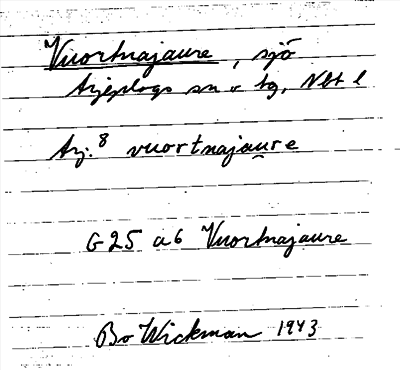 Vuortnajaure, sjö
Arjeplogs sn o tg, Nbt l
Arj.⁸ vuortnajau̯re
G25 a6 Vuortnajaure
Bo Wickman 1943